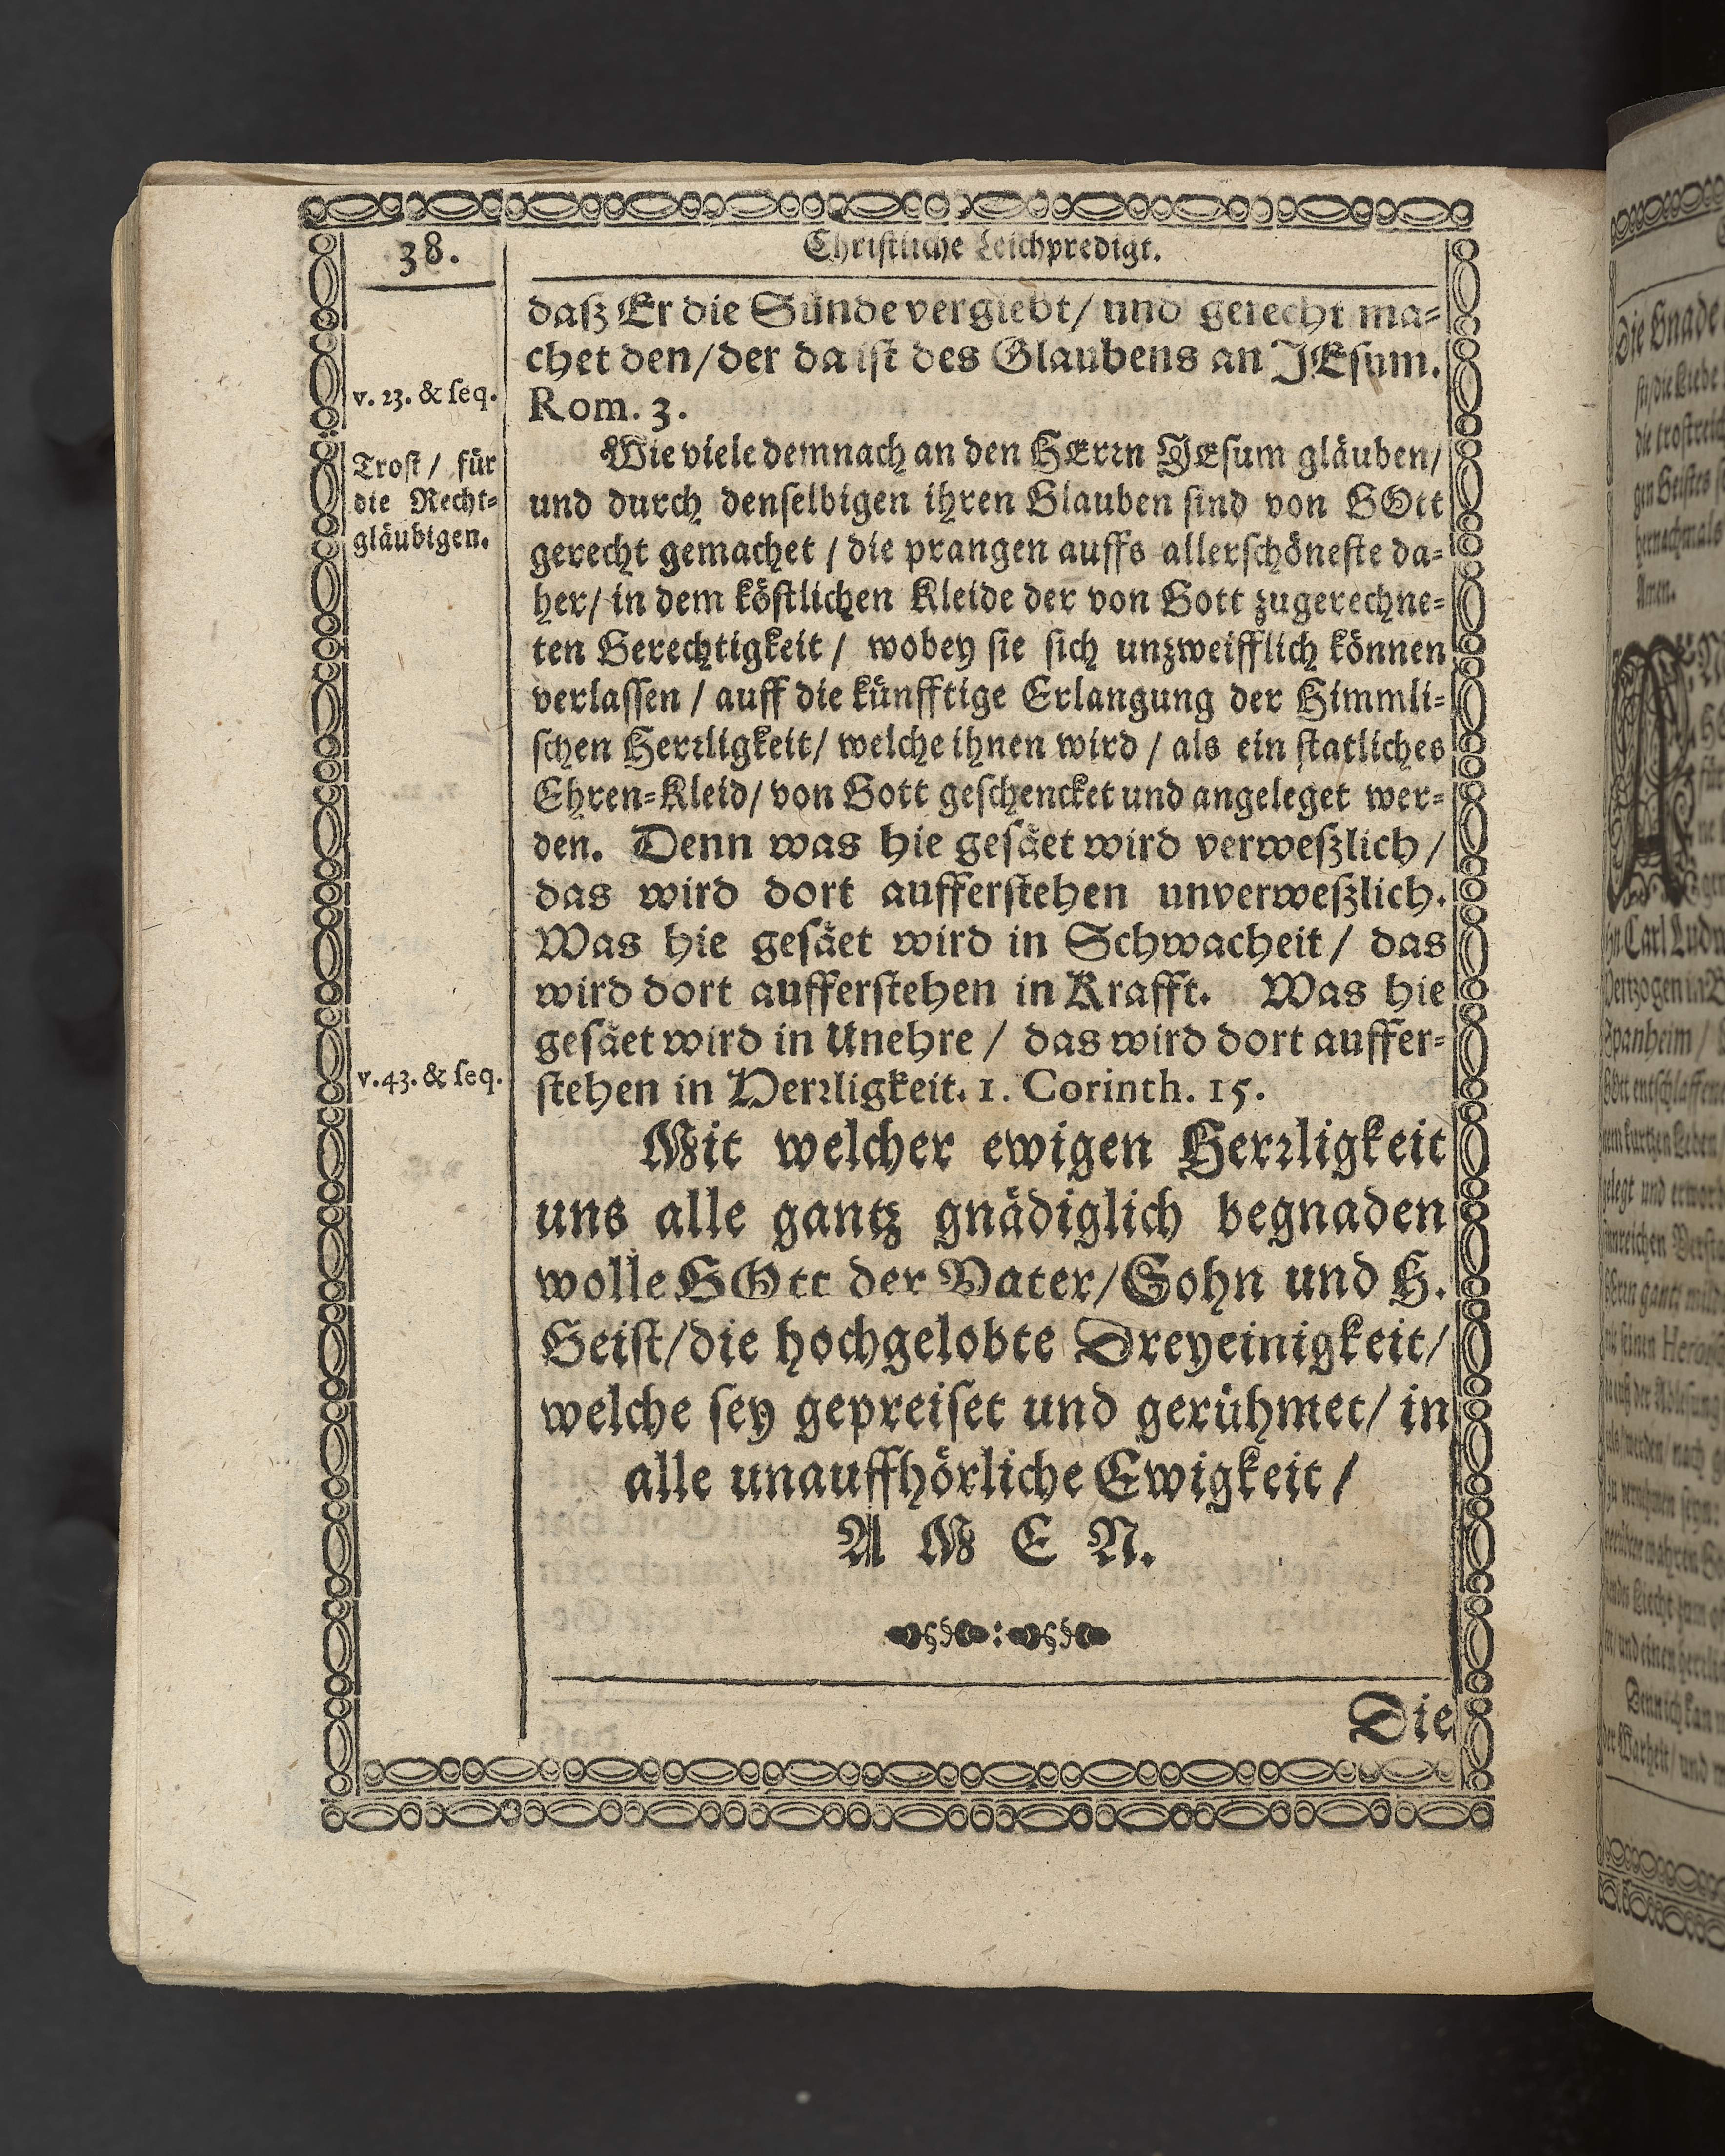 38.
Christliche Leichpredigt.
daß Er die Sünde vergiebt/ und gerecht ma-
chet den/ der da ist des Glaubens an JEsum.
v. 23. & seq.
Rom. 3.
Trost / für
die Recht-
gläubigen.
Wie viele demnach an den HErrn JEsum gläuben/
und durch denselbigen ihren Glauben sind von GOtt
gerecht gemachet / die prangen auffs allerschöneste da-
her/ in dem köstlichen Kleide der von Gott zugerechne-
ten Gerechtigkeit / wobey sie sich unzweifflich können
verlassen / auff die künfftige Erlangung der Himmli-
schen Herrligkeit/ welche ihnen wird / als ein statliches
Ehren-Kleid/ von Gott geschencket und angeleget wer-
den. Denn was hie gesäet wird verweßlich /
das wird dort aufferstehen unverweßlich.
Was hie gesäet wird in Schwacheit / das
wird dort aufferstehen in Krafft. Was hie
gesäet wird in Unehre / das wird dort auffer-
v. 43. & seq.
stehen in Herrligkeit. 1. Corinth. 15.
Mit welcher ewigen Herrligkeit
uns alle gantz gnädiglich begnaden
wolle GOtt der Vater/ Sohn und H.
Geist/ die hochgelobte Dreyeinigkeit/
welche sey gepreiset und gerühmet/ in
alle unauffhörliche Ewigkeit /
A M E N.
Die
Die Gnade
die trostreich
gen Geistes
hernachmals
Amen.
Carl Ludw
Spanheim /
Gott entschlaffen
gelegt und erworb
seinen
der Warheit/ und